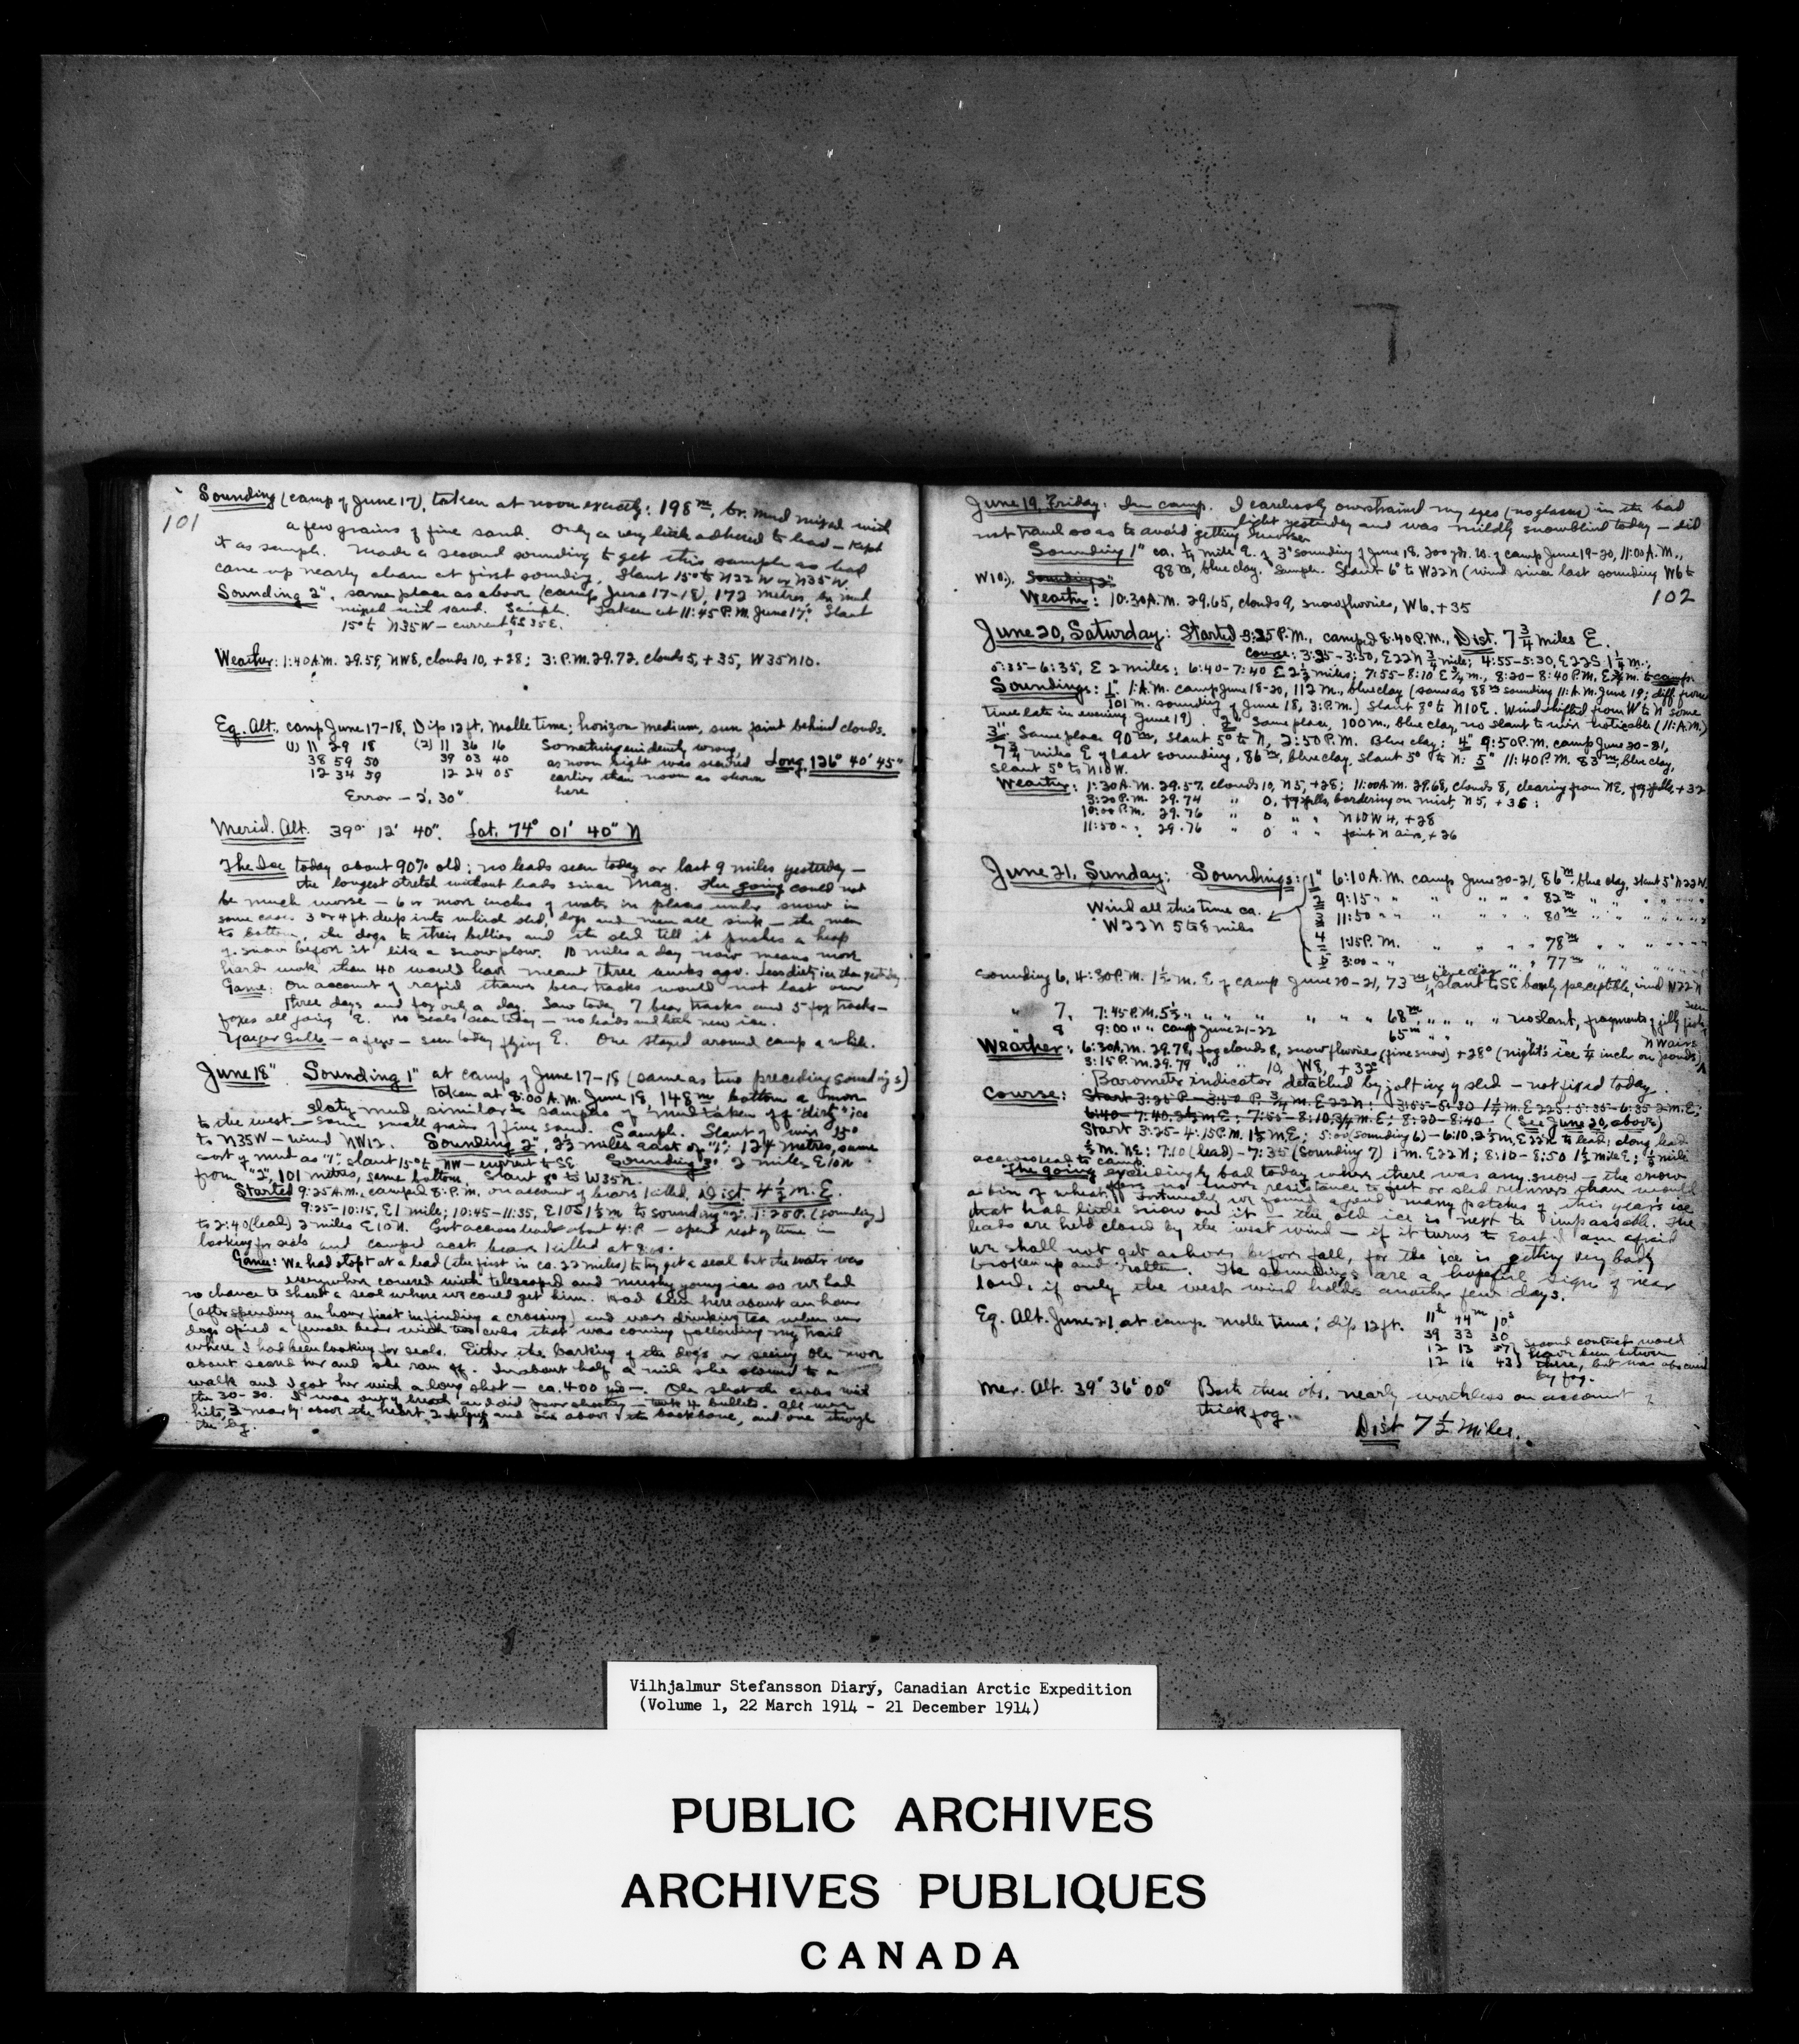 101
Sounding (camp of June 17), taken at noon exactly: 198m, br. mud mixed with
a few grains of fine sand. Only a very little adhered to lead – kept
it as sample. Made a second sounding to get this sample as lead
came up nearly clean at first sounding. Slant 15° to N22W or N35W.
Sounding 2", same place as above (camp June 17-18), 172 metres, br. mud
mixed with sand. Sample. Taken at 11:45 P.M. June 17. Slant
15° to N35W – current to S35E.
Weather: 1:40 A.M. 29.59, NW8, clouds 10, +28; 3: P.M. 29.72, clouds 5, +35, W35N10.
Eq. Alt., camp June 17-18, Dip 12 ft. Molle time; horizon medium, sun faint behind clouds.
(1) 11 29 18 (2) 11 36 16 Something evidently wrong,
38 59 50 39 03 40 as noon sight was secured Long 126° 40' 45"
12 34 59 12 24 05 earlier than noon as shown
Error – 2', 30" here
Merid. Alt. 39° 12' 40". Lat. 74° 01' 40" N
The Ice today about 90% old; no leads seen today or last 9 miles yesterday –
the longest stretch without leads since May. The going could not
be much worse – 6 or more inches of water in places under snow in
some cases 3 or 4 ft. deep into which sled, dogs and men all sink – the men
to bottom, the dogs to their bellies and the sled till it pushes a heap
of snow before it like a snow plow. 10 miles a day now means more
hard work than 40 would have meant three weeks ago. Less dirty ice than yesterday.
Game: On account of rapid thaws bear tracks would not last over
three days and fox only a day. Saw today 7 bear tracks and 5 fox tracks –
foxes all going E. No seals seen today – no leads and little new ice.
Yaeger Gulls – a few – seen today flying E. One stayed around camp a while.
June 18" Sounding 1" at camp of June 17-18 (same as two preceding soundings)
taken at 8:00 A.M. June 18, 148m bottom a more
slaty mud, similar to samples of mud taken off "dirty" ice
to the west – some small grains of fine sand. Sample. Slant of wire 15°
to N35W – wind NW12. Sounding 2", 2½ miles east of "1", 124 metres, same
sort of mud as "1", slant 15° to NW – current to SE. Sounding 3" 2 miles E10N
from "2", 101 metres, same bottom. Slant 8° to W35N.
Started 9:25 A.M., camped 8: P.M. on account of bears killed, Dist. 4½ m. E.
9:25-10:15, E1 mile; 10:45-11:35, E10S 1½ m to sounding "2". 1:25 P. (sounding)
to 2:40 (lead) 2 miles E10N. Got across leads about 4: P. – spent rest of time in
looking for seals and camped at bears killed at 8:00.
Game: We had stopt at a lead (the first in ca. 22 miles) to try get a seal but the water was
everywhere covered with telescoped and mushy young ice so we had
no chance to shoot a seal where we could get him. Had been here about an hour
(after spending an hour first in finding a crossing) and was drinking tea when our
dogs spied a female bear with two cubs that was coming following my trail
where I had been looking for seals. Either the barking of the dogs or seeing Ole move
about scared her and she ran off. In about half a mile she slowed to a
walk and I got her with a long shot – ca. 400 yds –. Ole shot the cubs with
the 30-30. I was out of breath and did poor shooting – took 4 bullets. All were
hits, 3 nearly above the heart, and one above the backbone, and one through
the leg.
June 19, Friday: In camp. I carelessly overstrained my eyes (no glasses) in the bad
light yesterday and was mildly snowblind today – did
not travel so as to avoid getting worse.
Sounding 1" ca. ½ mile E. of 3" sounding of June 18. 200 yds. W. of camp June 19-20, 11:00 A.M.,
88m, blue clay. Sample. Slant 6° to W22N (wind since last sounding W6 to
W10). Sounding 2"
102
Weather: 10:30 A.M. 29.65, clouds 9, snow flurries, W6, +35
June 20, Saturday: Started 3:25 P.M., camped 8:40 P.M., Dist. 7¾ miles E.
Course: 3:25-3:50, E22N ¾ mile; 4:55-5:30, E22S 1¼ m.;
5:35-6:35, E 2 miles; 6:40-7:40 E 2½ miles; 7:55-8:10 E ¾ m., 8:20-8:40 P.M. E¾ m. to camp.
Soundings: 1" 1: A.M. camp June 18-20, 112 m., blue clay (same as 88m sounding 11: A.M. June 19; diff. from
101 m. sounding of June 18, 3: P.M.) Slant 8° to N10E. Wind shifted from W to N some
time late in evening June 19). 2" Same place, 100 m, blue clay, no slant to wire noticable (11: A.M.)
3" Same place 90m, slant 5° to N, 2:50 P.M. Blue clay; 4" 9:50 P.M. camp June 20-21,
7¾ miles E of last sounding, 86m, blue clay. Slant 5° to N; 5" 11:40 P.M. 83m, blue clay,
slant 5° to N10W.
Weather: 1:30 A.M. 29.57, clouds 10, N5, +28; 11:00 A.M. 29.68, clouds 8, clearing from NE, fog falls, +32
3:20 P.M. 29.74 " 0, fog falls, bordering on mist, N5, +36:
10:00 P.M. 29.76 " 0 " " N10W4, +28
11:50 " " 29.76 " 0 " " faint N airs, +26
June 21, Sunday: Soundings: 1" 6:10 A.M. camp June 20-21, 86m, blue clay, slant 5° N22W
2 9:15 " " " " " 82m " " " " "
Wind all this time ca. 3 11:50 " " " " " 80m " " " " "
W22N 5 to 8 miles 4 1:15 P.M. " " " 78m " " " " "
5 3:00 " " " " " 77m " " " " "
Sounding 6, 4:30 P.M. 1½ m. E of camp June 20-21, 73m, blue clay slant to SE barely perceptible, wind N22W
" 7, 7:45 P.M. 5½ " " " " " 68m, " " " no slant, fragments of jelly fish seen
" 8 9:00 " " camp June 21-22 65m " " N airs
Weather: 6:30 A.M. 29.78, fog clouds 8, snow flurries (fine snow) +28° (night's ice ¼ inch on ponds)
3:15 P.M. 29.79 " " 10, W8, +32°
Barometer indicator detached by jolting of sled – not fixed today.
Course: Start 3:25 P – 3:50 P. ¾ m. E22N: 3:55-5:30 1¼ m. E22S: 5:35-6:35 2 m. E;
6:40-7:40, 2½ m E; 7:55-8:10, ¾ m. E; 8:20-8:40. (See June 20, above)
Start 3:25-4:15 P.M. 1½ m E; 5:00 (sounding 6) – 6:10, 2½ m, E22N to lead; along lead
½ m. NE; 7:10 (lead) – 7:35 (sounding 7) 1 m. E22N; 8:10-8:50 1½ mile E; ½ mile
across lead to camp.
The going exceedingly bad today where there was any snow – the snow
offers no more resistance to feet or sled runners than would
a bin of wheat. Fortunately we found a good many patches of this year's ice
that had little snow on it – the old ice is next to impassable. The
leads are held closed by the west wind – if it turns to East I am afraid
we shall not get ashore before fall, for the ice is getting very badly
broken up and rotten. The soundings are a hopeful sign of near
land, if only the west wind holds another few days.
Eq. Alt. June 21, at camp Molle time; dip 12 ft. 11h 44m 10s
39 33 30 Second contact would
12 13 57 have been between
12 16 43 these, but was obscured
by fog.
Mer. Alt. 39° 36' 00" Both these obs. nearly worthless on account of
thick fog.
Dist 7½ miles.
Vilhjalmur Stefansson Diary, Canadian Arctic Expedition
(Volume 1, 22 March 1914 - 21 December 1914)
PUBLIC ARCHIVES
ARCHIVES PUBLIQUES
CANADA